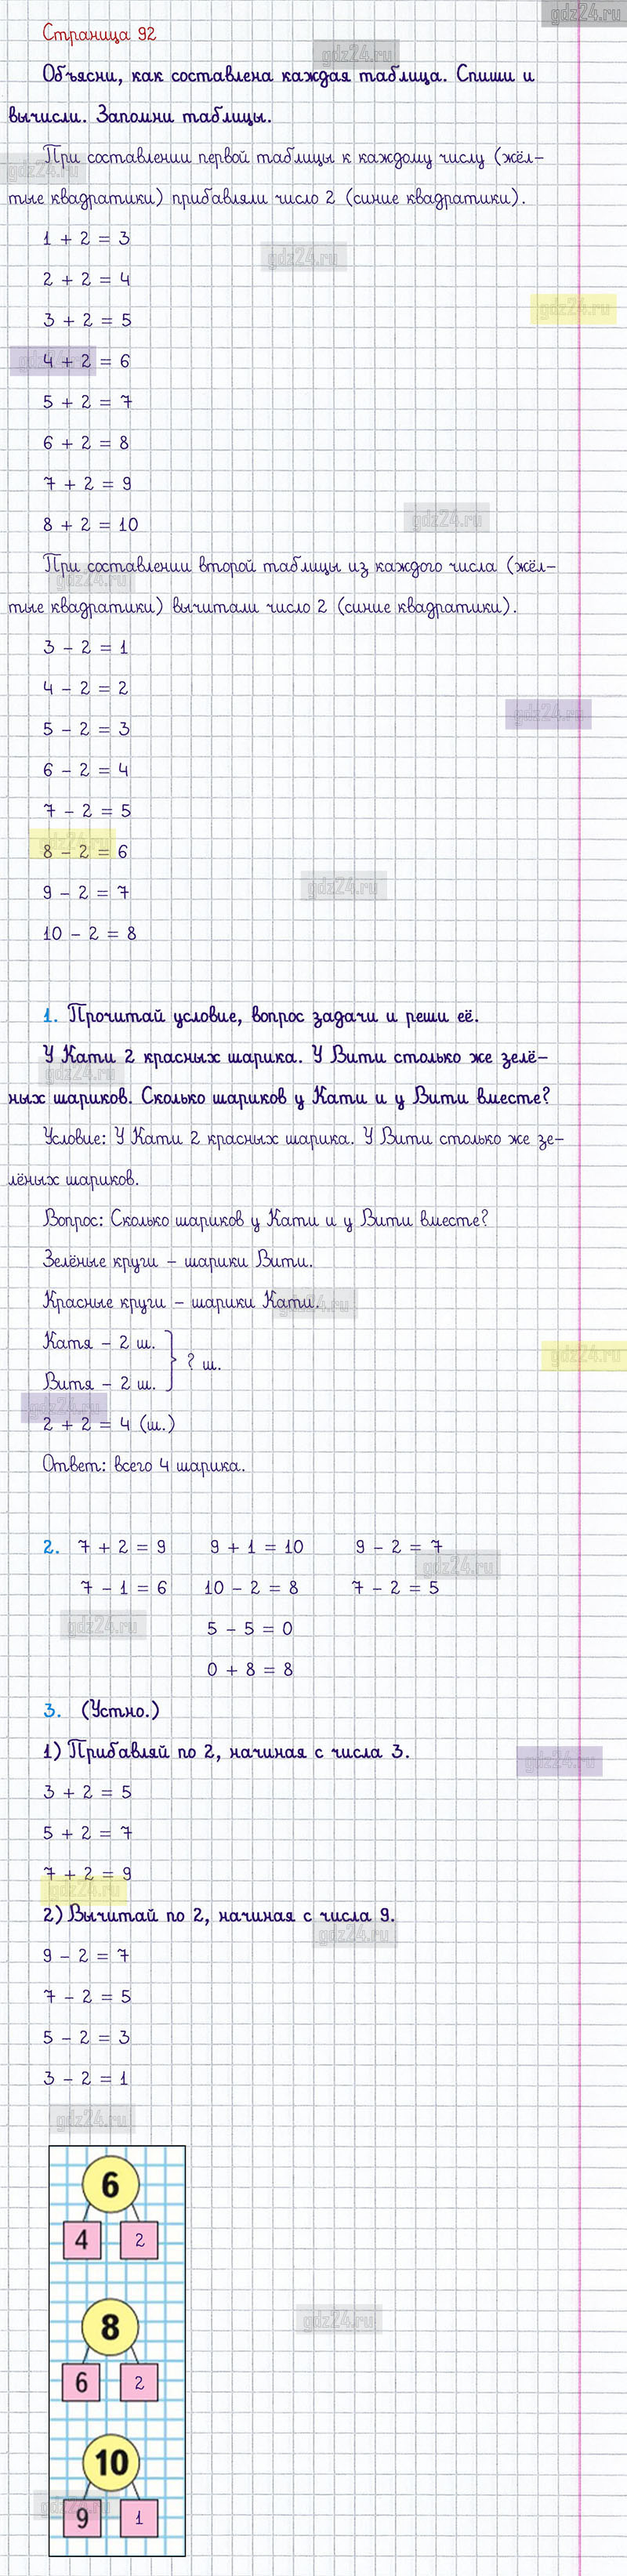 gdz24.ru
Страница 92
gdz24.ru
Объясни, как составлена каждая таблица. Спиши и
вычисли. Запомни таблицы.
При составлении первой таблицы к каждому числу (жёл-
gdz24.ru
тые квадратики) прибавляли число 2 (синие квадратики).
1 + 2 = 3
gdz24.ru
2 + 2 = 4
gdz24.ru
3 + 2 = 5
gdz24.ru
4 + 2 = 6
5 + 2 = 7
6 + 2 = 8
7 + 2 = 9
gdz24.ru
8 + 2 = 10
При составлении второй таблицы из каждого числа (жёл-
gdz24.ru
тые квадратики) вычитали число 2 (синие квадратики).
3 - 2 = 1
4 - 2 = 2
gdz24.ru
5 - 2 = 3
6 - 2 = 4
7 - 2 = 5
gdz24.ru
8 - 2 = 6
gdz24.ru
9 - 2 = 7
10 - 2 = 8
1. Прочитай условие, вопрос задачи и реши её.
У Кати 2 красных шарика. У Вити столько же зелё-
gdz24.ru
ных шариков. Сколько шариков у Кати и у Вити вместе?
Условие: У Кати 2 красных шарика. У Вити столько же зе-
лёных шариков.
Вопрос: Сколько шариков у Кати и у Вити вместе?
Зелёные круги – шарики Вити.
Красные круги – шарики Кати.
gdz24.ru
Катя – 2 ш.
? ш.
gdz24.ru
Витя – 2 ш.
gdz24.ru
2 + 2 = 4 (ш.)
Ответ: всего 4 шарика.
2. 7 + 2 = 9 9 + 1 = 10 9 - 2 = 7
gdz24.ru
7 - 1 = 6 10 - 2 = 8 7 - 2 = 5
gdz24.ru
5 - 5 = 0
0 + 8 = 8
3. (Устно.)
1) Прибавляй по 2, начиная с числа 3.
gdz24.ru
3 + 2 = 5
5 + 2 = 7
7 + 2 = 9
gdz24.ru
2) Вычитай по 2, начиная с числа 9.
gdz24.ru
9 - 2 = 7
7 - 2 = 5
5 - 2 = 3
3 - 2 = 1
gdz24.ru
6
4 2
gdz24.ru
8
6 2
10
gdz24.ru
9 1